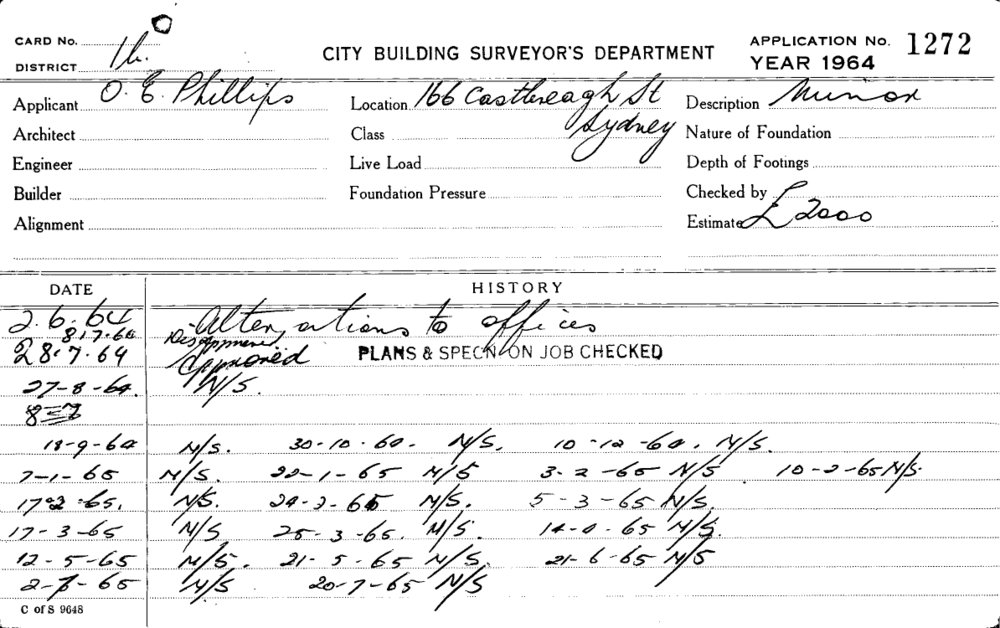 CARD No.
DISTRICT 1h.
CITY BUILDING SURVEYOR'S DEPARTMENT
APPLICATION No. 1272
YEAR 1964
Applicant O. E. Phillips
Location 166 Castlereagh St Sydney
Description Minor
Architect
Class
Nature of Foundation
Engineer
Live Load
Depth of Footings
Builder
Foundation Pressure
Checked by
Alignment
Estimate £ 2000
DATE HISTORY
2.6.64 Alterations to offices
8.7.64 Disapproved
28.7.64 Approved PLANS & SPECN ON JOB CHECKED
27-8-64. N/S.
18-9-64 N/S. 30-10-64. N/S. 10-12-64. N/S.
7-1-65 N/S. 22-1-65 N/S 3-2-65 N/S 10-2-65 N/S.
17-2-65. N/S. 24-2-65 N/S. 5-3-65 N/S.
17-3-65 N/S 25-3-65. N/S. 14-4-65 N/S.
12-5-65 N/S. 21-5-65 N/S. 21-6-65 N/S
2-7-65 N/S 20-7-65 N/S
C of S 9648